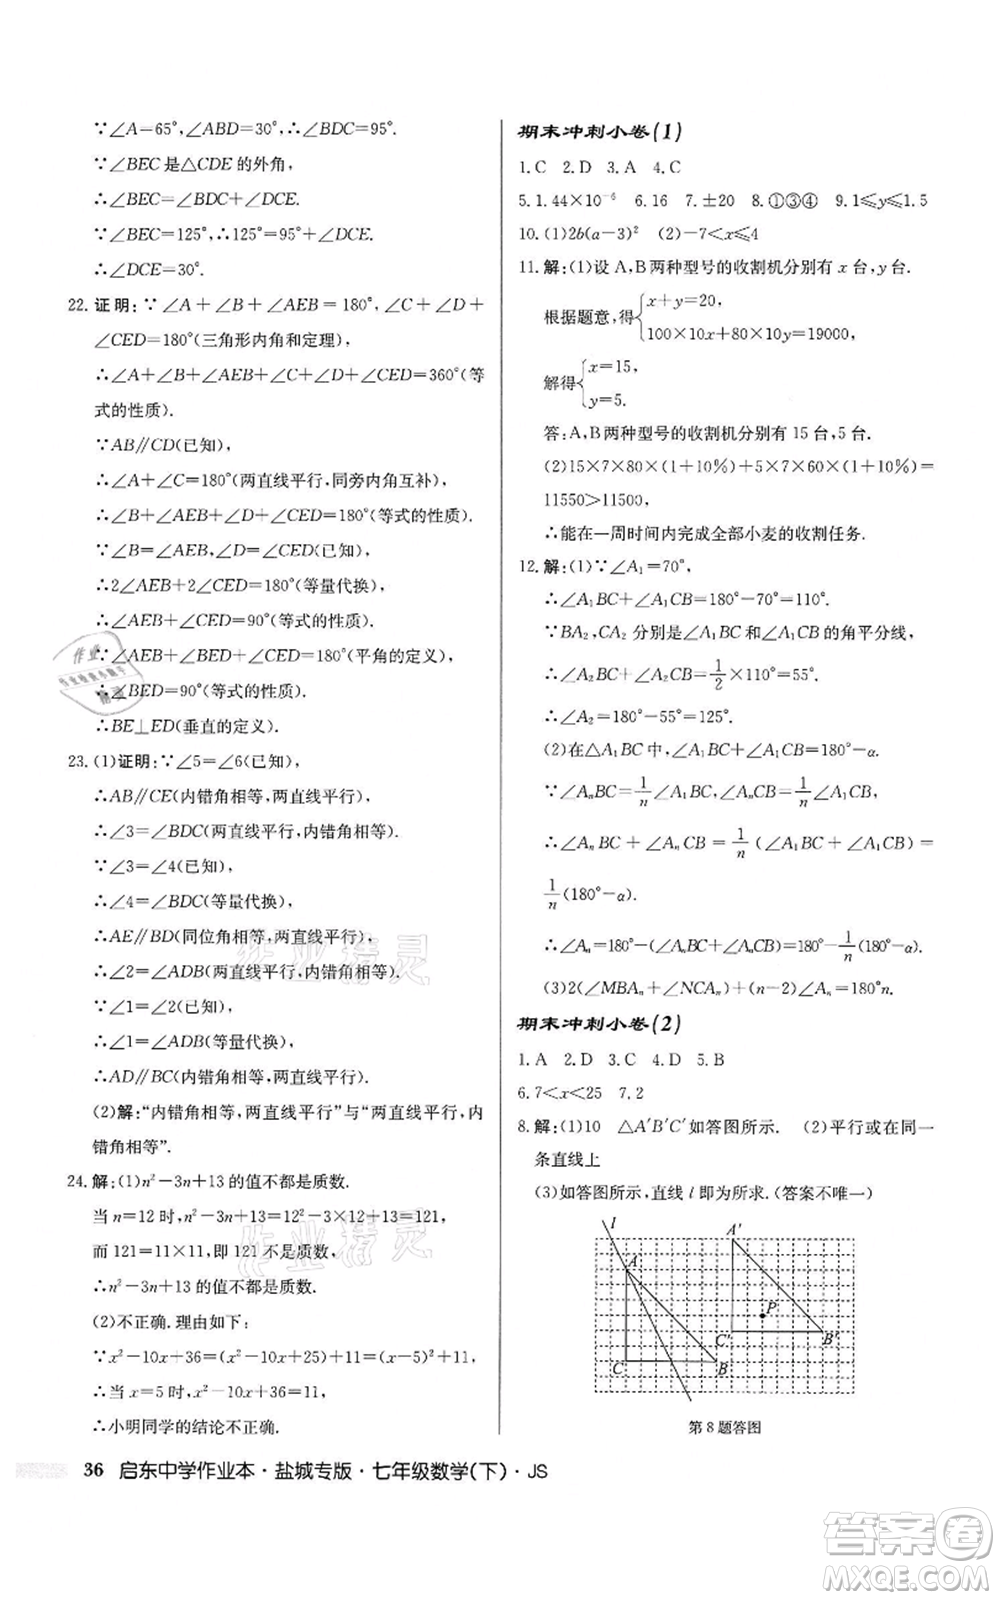 ∵∠A=65°,∠ABD=30°,∴∠BDC=95°.
∵∠BEC是△CDE的外角,
∴∠BEC=∠BDC+∠DCE.
∵∠BEC=125°,∴125°=95°+∠DCE.
∴∠DCE=30°.
22.证明:∵∠A+∠B+∠AEB=180°,∠C+∠D+
∠CED=180°(三角形内角和定理),
∴∠A+∠B+∠AEB+∠C+∠D+∠CED=360°(等
式的性质).
∵AB∥CD(已知),
∴∠A+∠C=180°(两直线平行,同旁内角互补),
∴∠B+∠AEB+∠D+∠CED=180°(等式的性质).
∵∠B=∠AEB,∠D=∠CED(已知),
∴2∠AEB+2∠CED=180°(等量代换),
∴∠AEB+∠CED=90°(等式的性质).
∵∠AEB+∠BED+∠CED=180°(平角的定义),
∴∠BED=90°(等式的性质).
∴BE⊥ED(垂直的定义).
23.(1)证明:∵∠5=∠6(已知),
∴AB∥CE(内错角相等,两直线平行),
∴∠3=∠BDC(两直线平行,内错角相等).
∵∠3=∠4(已知),
∴∠4=∠BDC(等量代换),
∴AE∥BD(同位角相等,两直线平行),
∴∠2=∠ADB(两直线平行,内错角相等).
∵∠1=∠2(已知),
∴∠1=∠ADB(等量代换),
∴AD∥BC(内错角相等,两直线平行).
(2)解:“内错角相等,两直线平行”与“两直线平行,内
错角相等”.
24.解:(1)n²-3n+13的值不都是质数.
当n=12时,n²-3n+13=12²-3×12+13=121,
而121=11×11,即121不是质数,
∴n²-3n+13的值不都是质数.
(2)不正确.理由如下:
∵x²-10x+36=(x²-10x+25)+11=(x-5)²+11,
∴当x=5时,x²-10x+36=11,
∴小明同学的结论不正确.
期末冲刺小卷(1)
1.C 2.D 3.A 4.C
5.1.44×10⁻⁶ 6.16 7.±20 8.①③④ 9.1≤y≤1.5
10.(1)2b(a-3)² (2)-7<x≤4
11.解:(1)设A,B两种型号的收割机分别有x台,y台.
根据题意,得{x+y=20,
100×10x+80×10y=19000,
解得{x=15,
y=5.
答:A,B两种型号的收割机分别有15台,5台.
(2)15×7×80×(1+10%)+5×7×60×(1+10%)=
11550>11500,
∴能在一周时间内完成全部小麦的收割任务.
12.解:(1)∵∠A₁=70°,
∴∠A₁BC+∠A₁CB=180°-70°=110°.
∵BA₂,CA₂分别是∠A₁BC和∠A₁CB的角平分线,
∴∠A₂BC+∠A₂CB=1/2×110°=55°.
∴∠A₂=180°-55°=125°.
(2)在△A₁BC中,∠A₁BC+∠A₁CB=180°-α.
∵∠AₙBC=1/n∠A₁BC,∠AₙCB=1/n∠A₁CB,
∴∠AₙBC+∠AₙCB=1/n(∠A₁BC+∠A₁CB)=
1/n(180°-α).
∴∠Aₙ=180°-(∠AₙBC+∠AₙCB)=180°-1/n(180°-α).
(3)2(∠MBAₙ+∠NCAₙ)+(n-2)∠Aₙ=180°n.
期末冲刺小卷(2)
1.A 2.D 3.C 4.D 5.B
6.7<x<25 7.2
8.解:(1)10 △A′B′C′如答图所示. (2)平行或在同一
条直线上
(3)如答图所示,直线l即为所求.(答案不唯一)
l
A′
A
P
C′
B′
C
B
第8题答图
36 启东中学作业本·盐城专版·七年级数学(下)·JS
作业精灵
作业精灵
答案圈
MXQE.COM